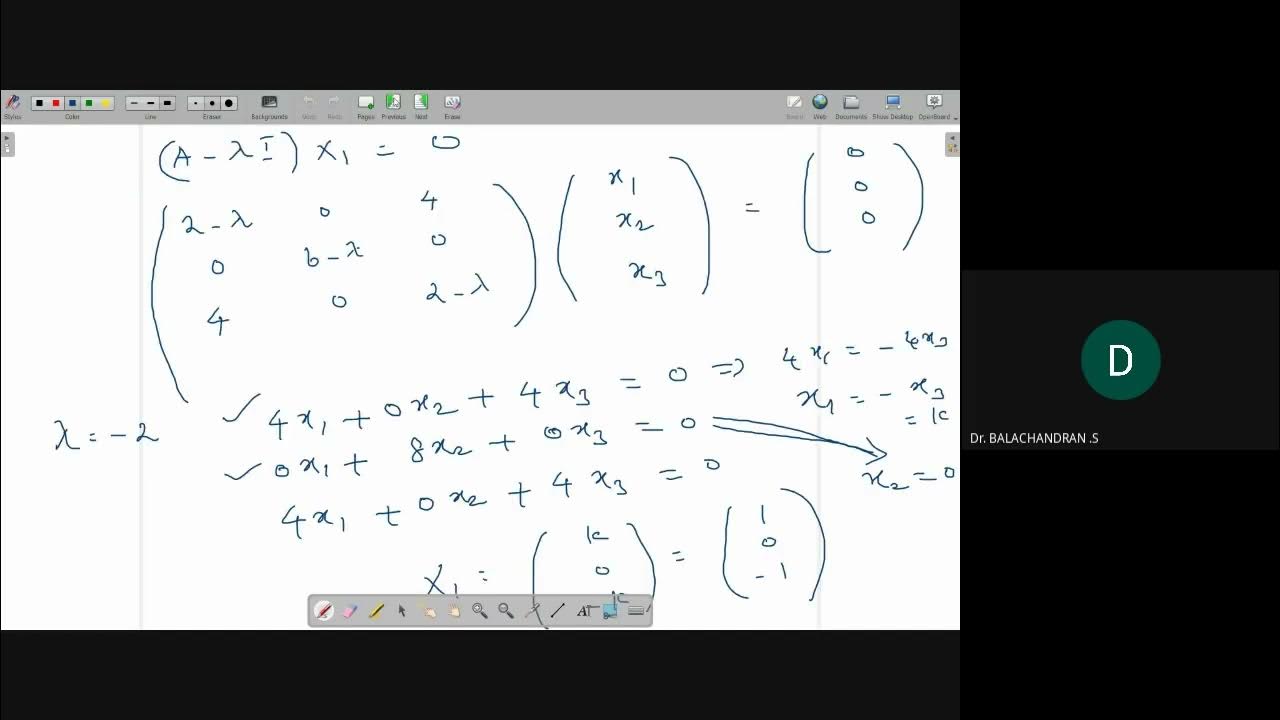 Styles Color Line Eraser Backgrounds Undo Redo Pages Previous Next Erase Board Web Documents Show Desktop OpenBoard
(A - λI) X₁ = 0
2-λ 0 4 x₁ 0
0 6-λ 0 x₂ = 0
4 0 2-λ x₃ 0
4x₁ + 0x₂ + 4x₃ = 0 ⇒ 4x₁ = -4x₃
x₁ = -x₃
= k
λ = -2
✓ 0x₁ + 8x₂ + 0x₃ = 0
x₂ = 0
4x₁ + 0x₂ + 4x₃ = 0
k 1
X₁ = 0 = 0
-k -1
D
Dr. BALACHANDRAN .S